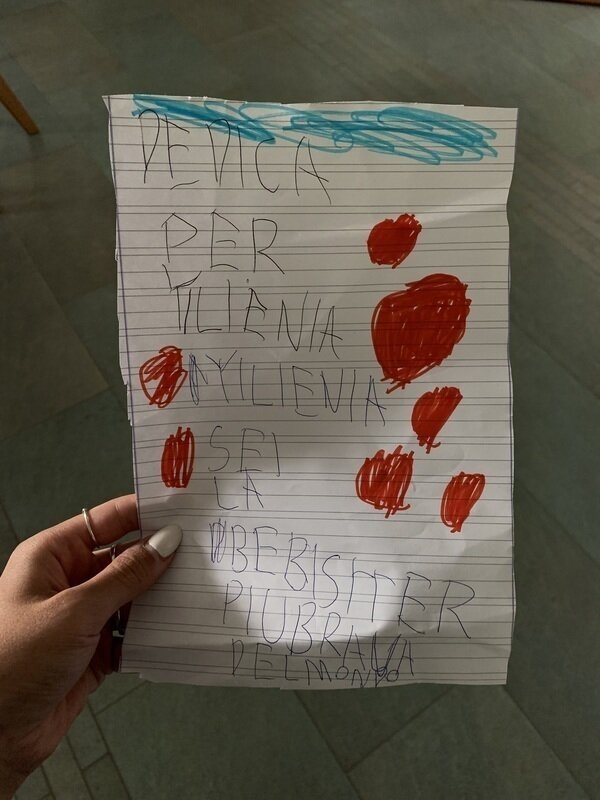 DEDICA
PER
YILIENIA
YILIENIA
SEI
LA
BEBISITER
PIUBRAVA
DELMONDO